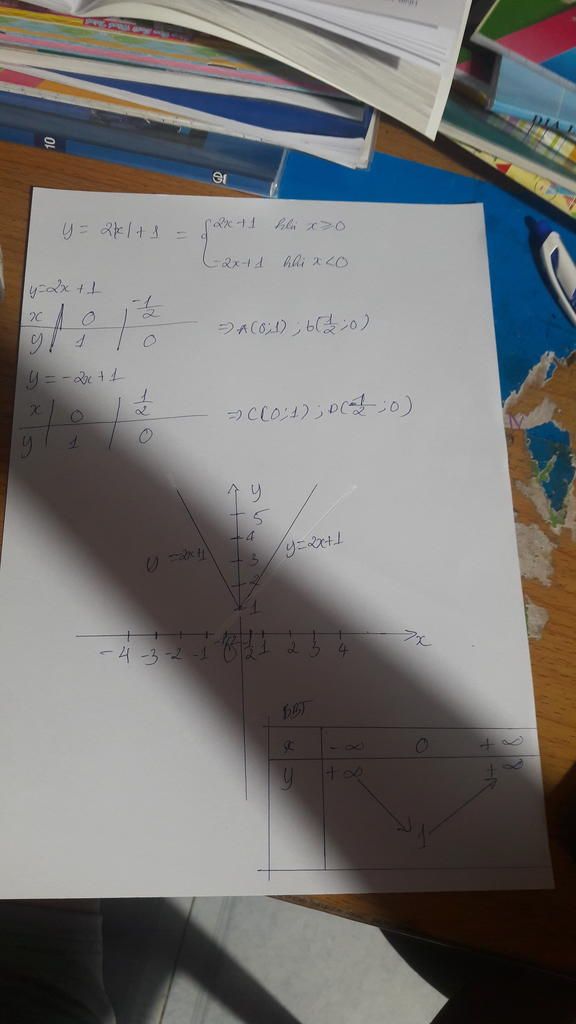 10
y = 2|x| + 1 = { 2x+1 khi x ≥ 0
-2x+1 khi x < 0
y = 2x + 1
x | 0 | -1/2
y | 1 | 0
⇒ A(0;1) ; B(1/2 ;0)
y = -2x + 1
x | 0 | 1/2
y | 1 | 0
⇒ C(0;1) ; D(-1/2 ;0)
y
5
4
3
2
1
y = -2x+1
y = 2x+1
-4 -3 -2 -1 0 1/2 1 2 3 4 x
BBT
x | -∞ 0 +∞
y | +∞ +∞
1